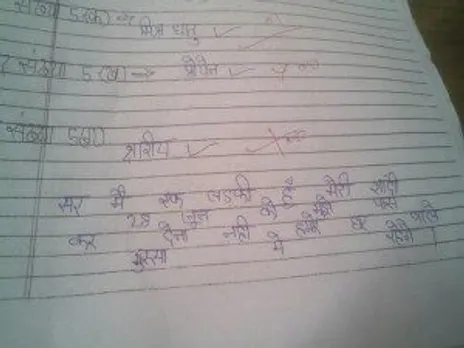 संख्या 5 (क) → मिश्र धातु ✓
संख्या 5 (ख) → प्रोटीन ✓
संख्या 5 (ग)
क्षारीय ✓
सर मैं एक लड़की हूँ मेरी शादी
28 जून को है मुझे पास
कर देना नहीं हमारे घर वाले
गुस्सा में रहेंगे।